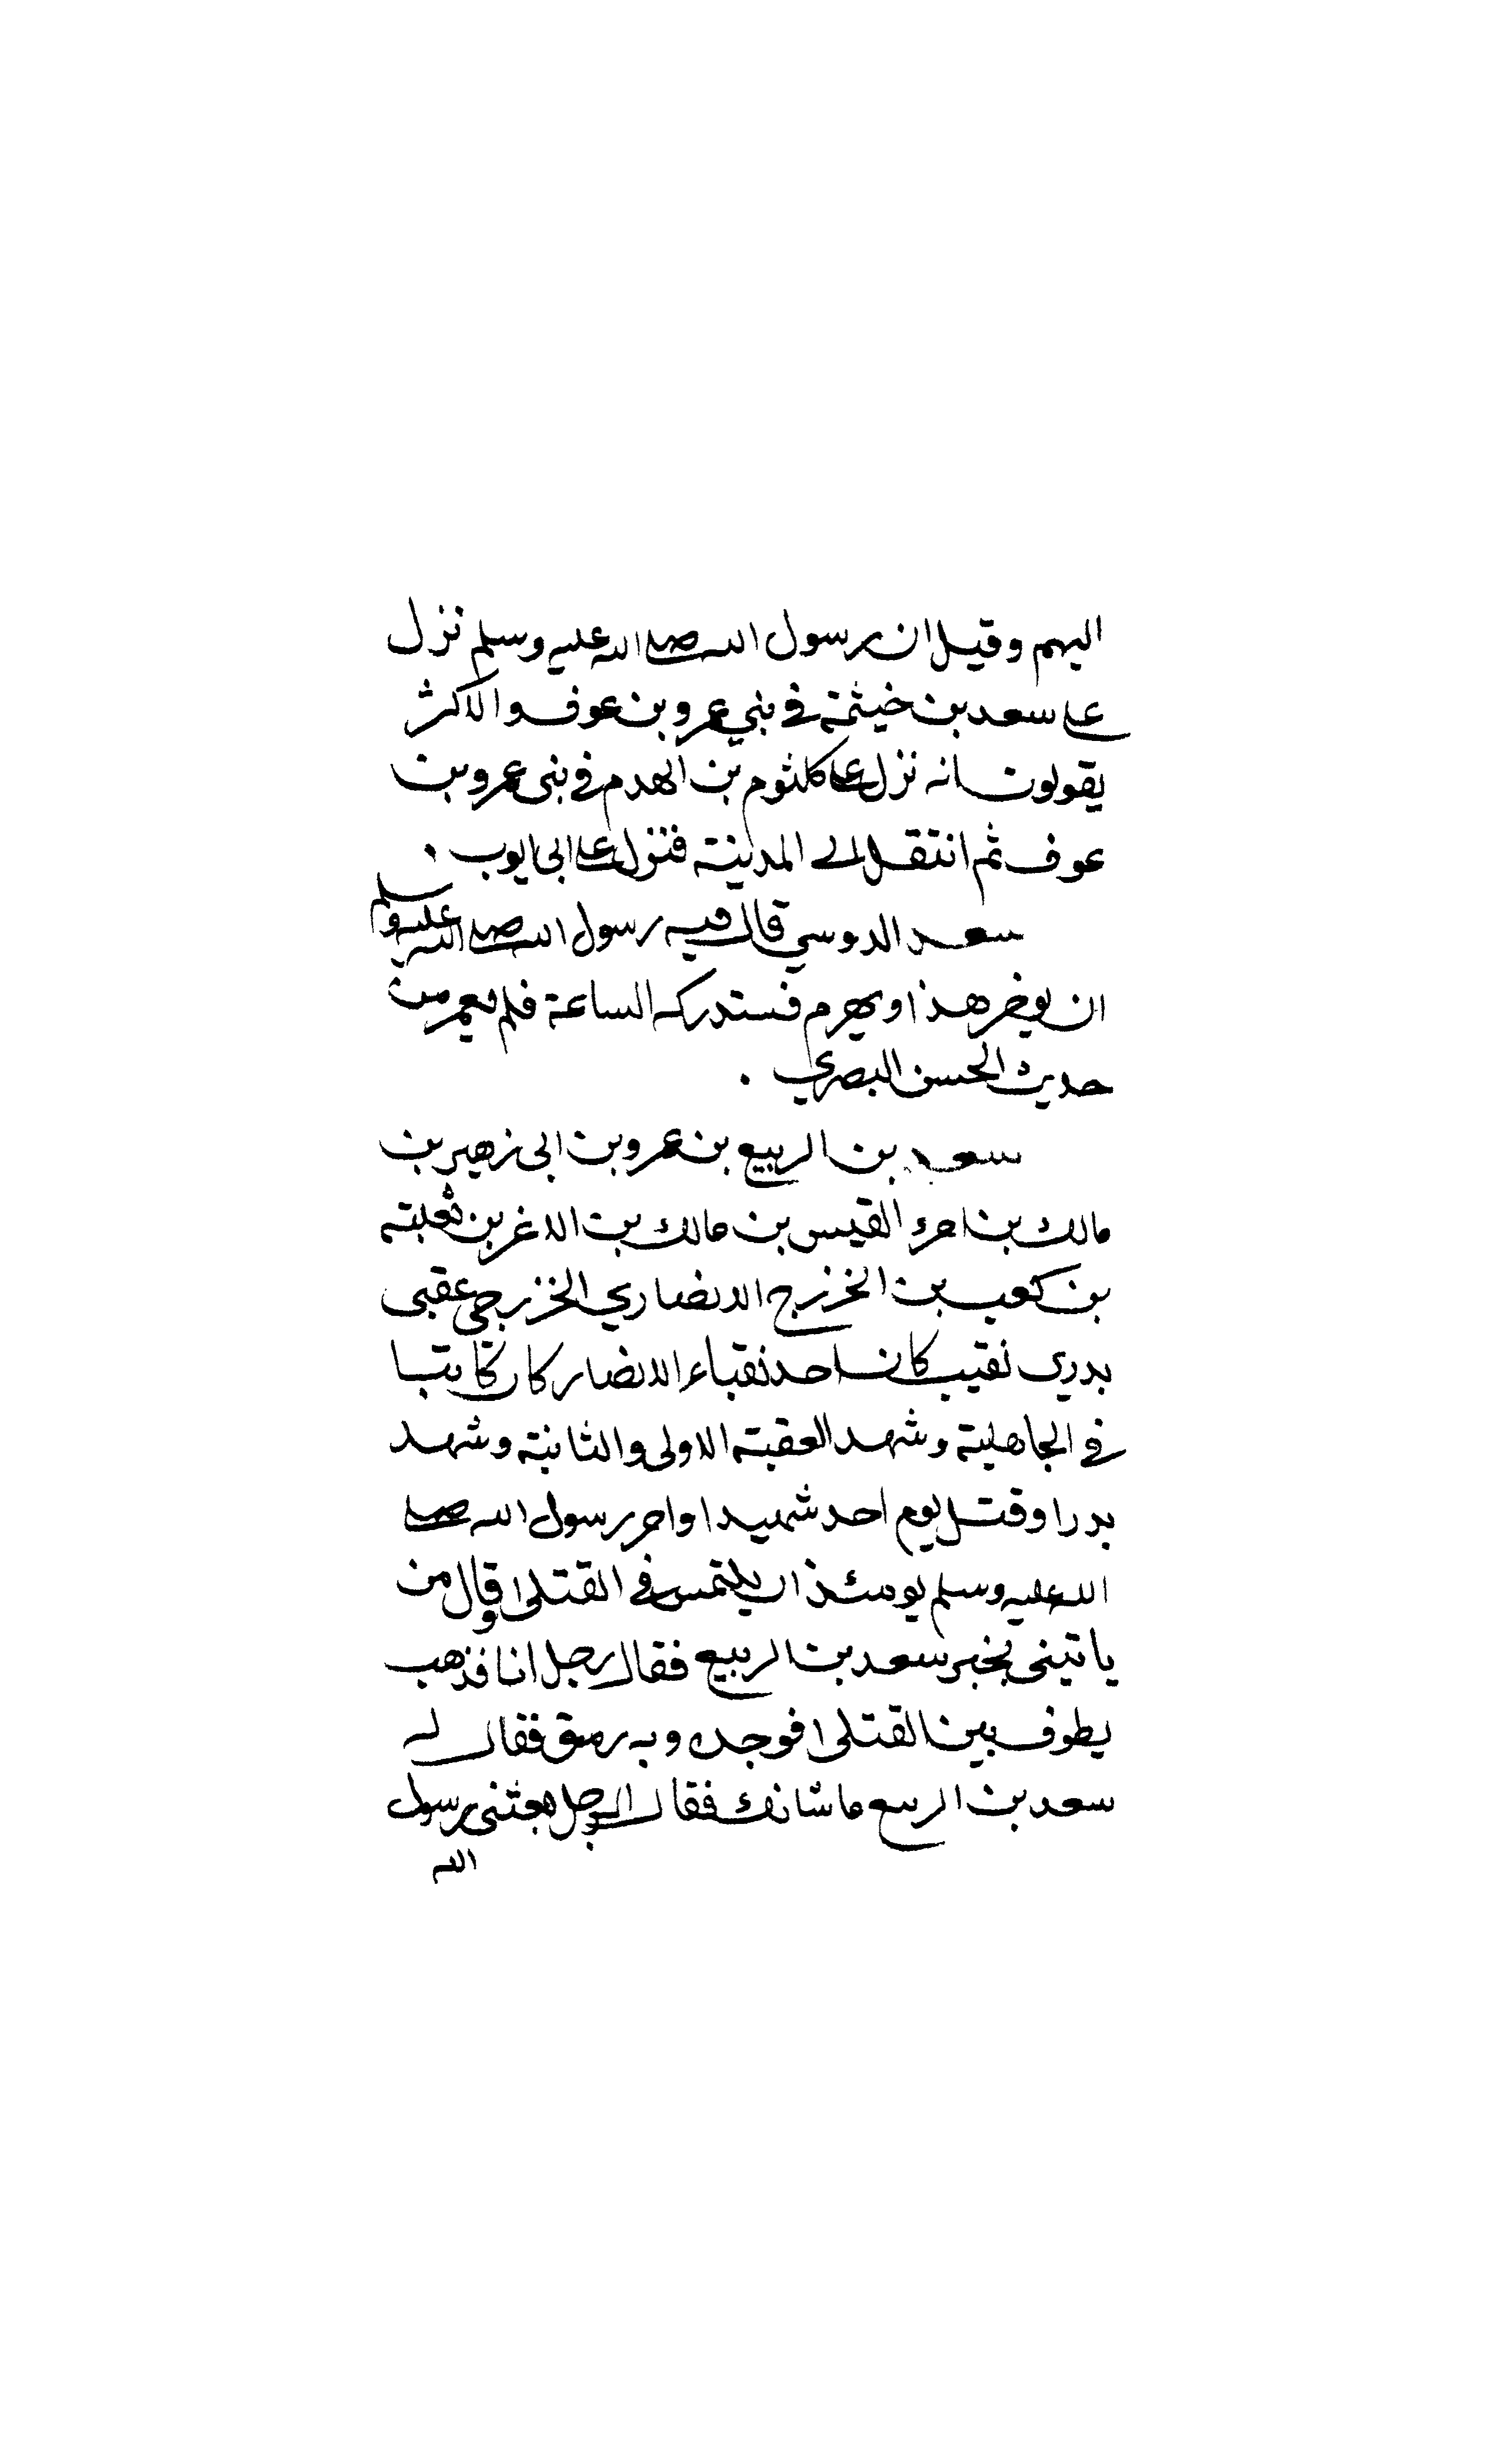 اليهم وقيل ان رسول الله صلى الله عليه وسلم نزل
على سعد بن خيثمة في بني عمرو بن عوف والاكثر
يقولون انه نزل على كلثوم بن الهدم في بني عمرو بن
عوف ثم انتقل الى المدينة فنزل على ابى ايوب .
سعد الدوسي قال فيه رسول الله صلى الله عليه وسلم
ان يوخر هذا ويهرم فستدركه الساعة فلم يعمر من
حديث الحسن البصري .
سعد بن الربيع بن عمرو بن ابى زهير بن
مالك بن امرء القيس بن مالك بن الاغر بن ثعلبة
بن كعب بن الخزرج الانصاري الخزرجي عقبى
بدري نقيب كان احد نقباء الانصار كان كاتبا
في الجاهلية وشهد العقبة الاولى والثانية وشهد
بدرا وقتل يوم احد شهيدا وامر رسول الله صلى
الله عليه وسلم يومئذ ان يلتمس في القتلى وقال من
ياتينى بخبر سعد بن الربيع فقال رجل انا فذهب
يطوف بين القتلى فوجده وبه رمق فقال له
سعد بن الربيع ما شانك فقال الرجل بعثنى رسول
الله